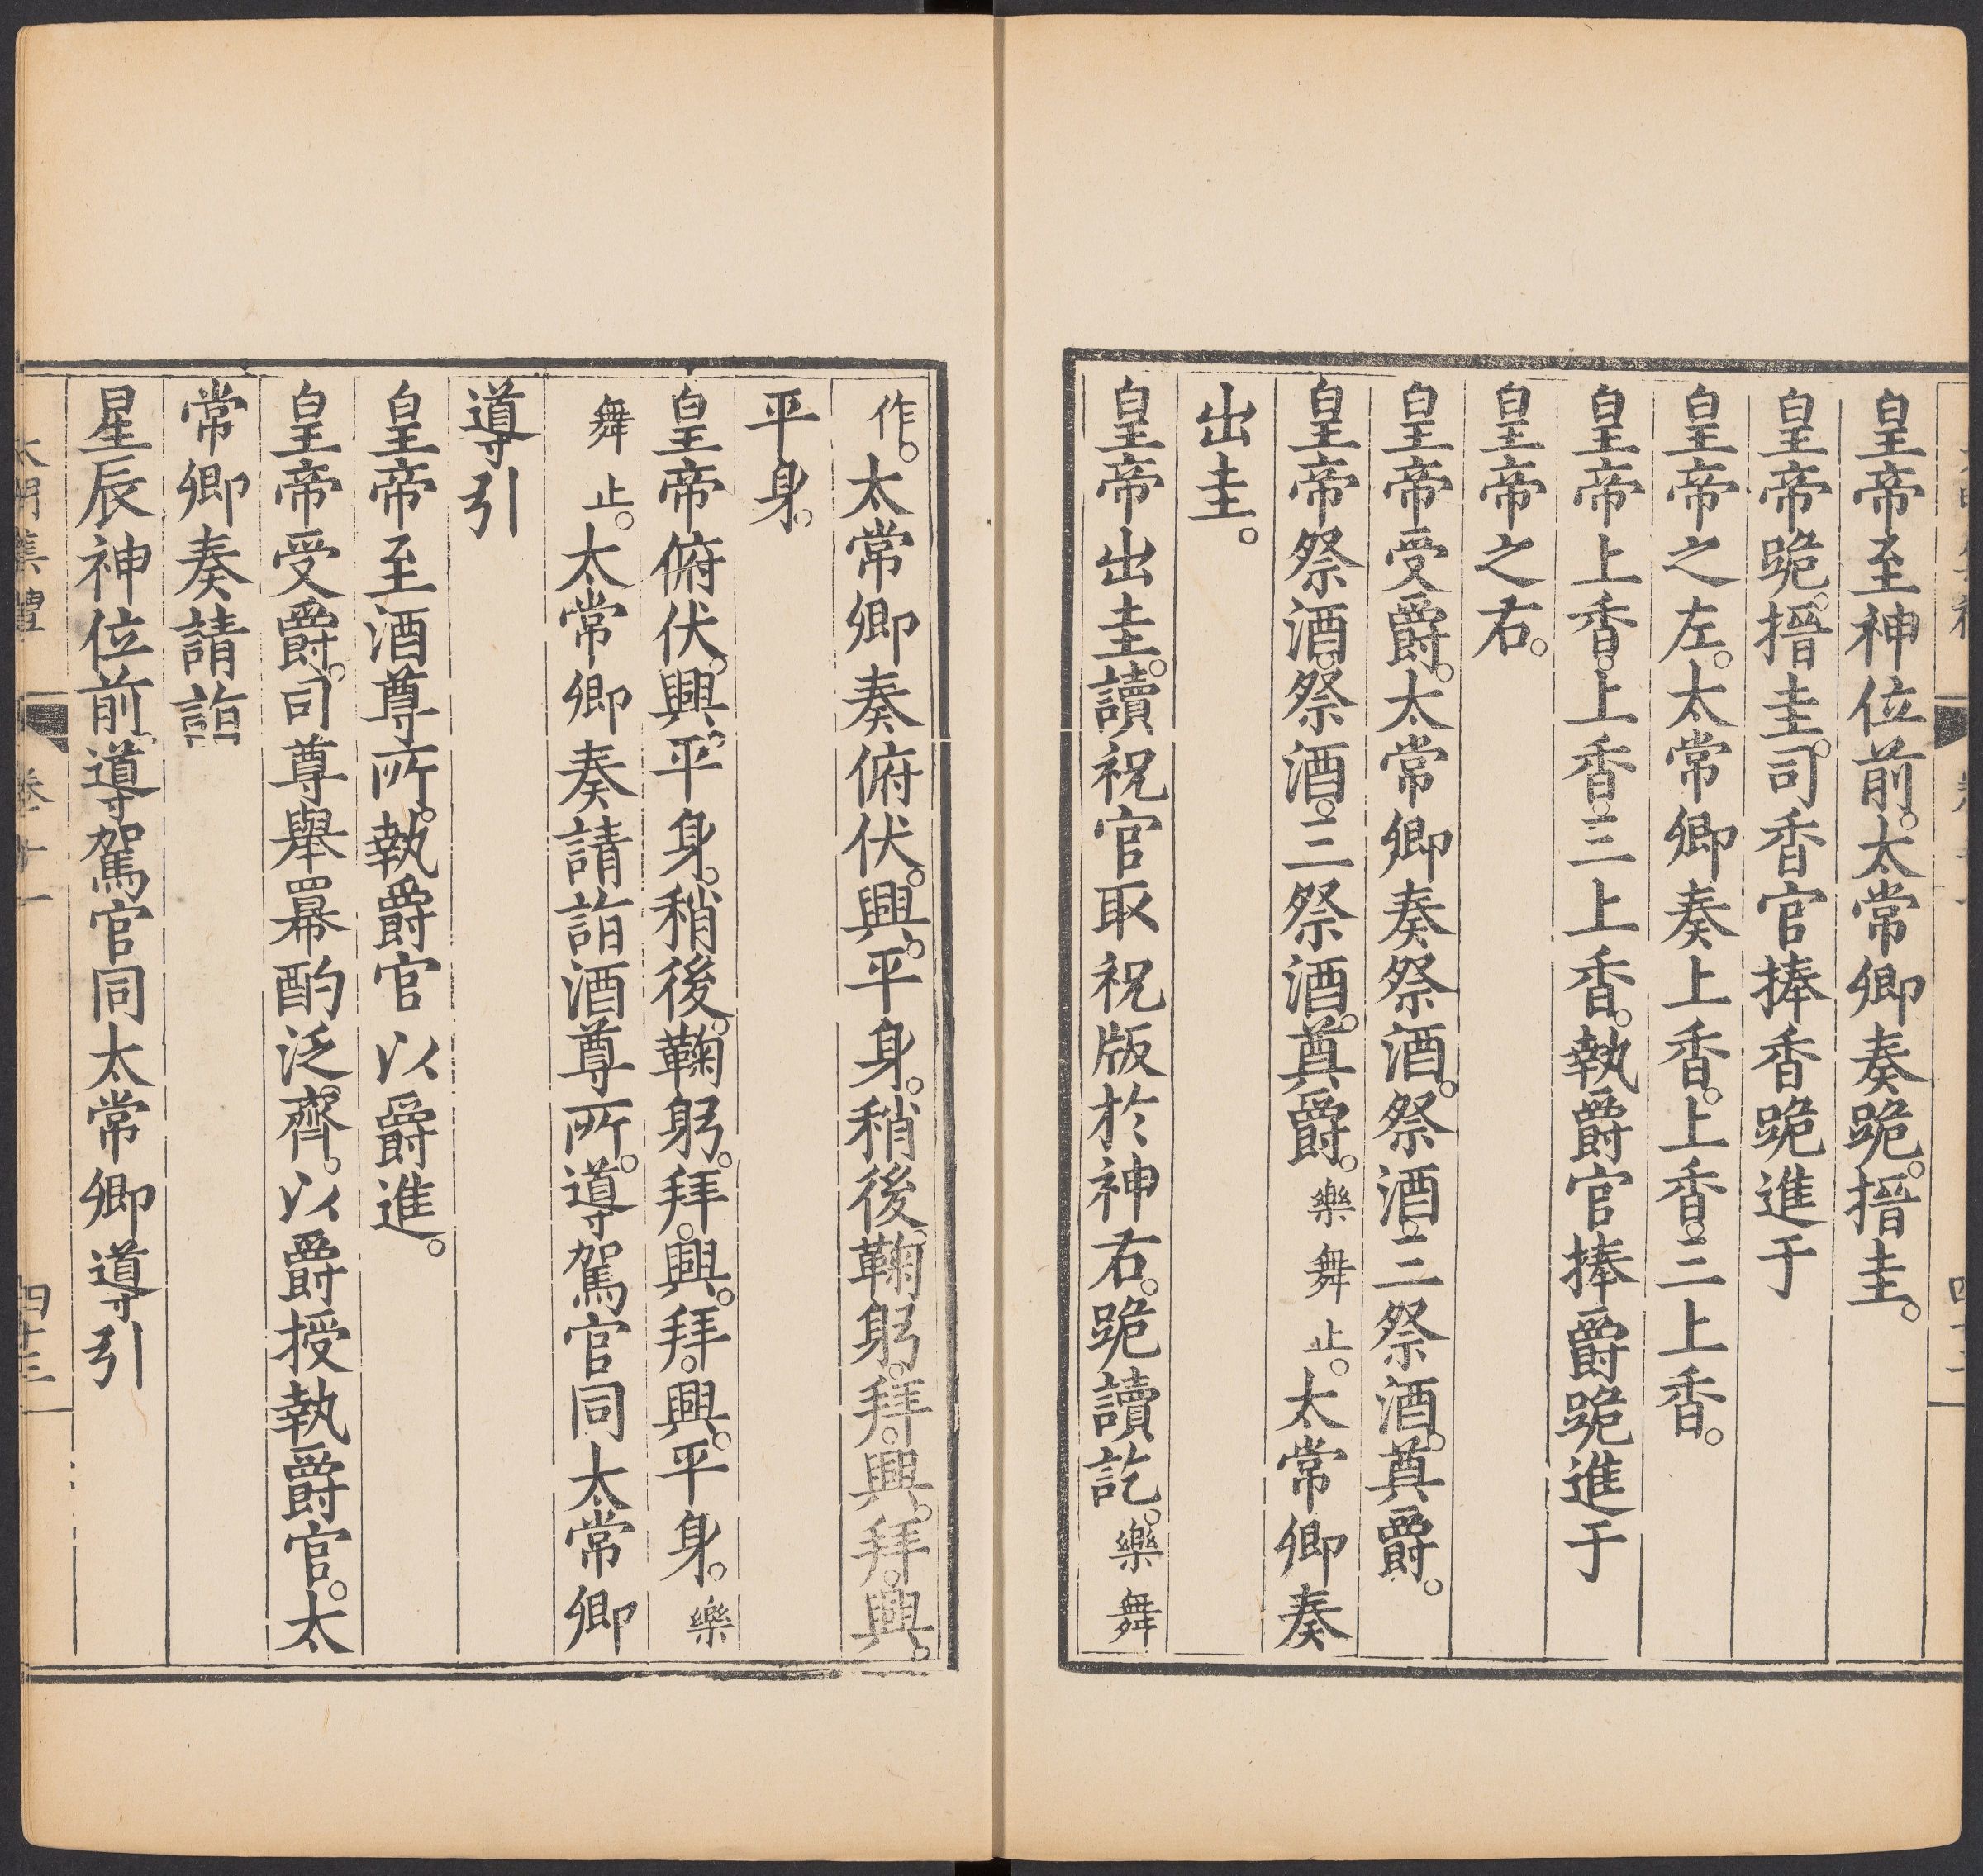 皇帝至神位前。太常卿奏跪。搢圭。
皇帝跪。搢圭。司香官捧香跪進于
皇帝之左。太常卿奏上香。上香。三上香。
皇帝上香。上香。三上香。執爵官捧爵跪進于
皇帝之右。
皇帝受爵。太常卿奏祭酒。祭酒。三祭酒。奠爵。
皇帝祭酒。祭酒。三祭酒。奠爵。樂舞止。太常卿奏
出圭。
皇帝出圭。讀祝官取祝版於神右。跪讀訖。樂舞
作。太常卿奏俯伏。興。平身。稍後。鞠躬。拜。興。拜。興。
平身。
皇帝俯伏。興。平身。稍後。鞠躬。拜。興。拜。興。平身。樂
舞止。太常卿奏請詣酒尊所。導駕官同太常卿
導引
皇帝至酒尊所。執爵官以爵進。
皇帝受爵。司尊舉冪酌泛齊。以爵授執爵官。太
常卿奏請詣
星辰神位前。導駕官同太常卿導引
大明集禮 卷十一 四十三